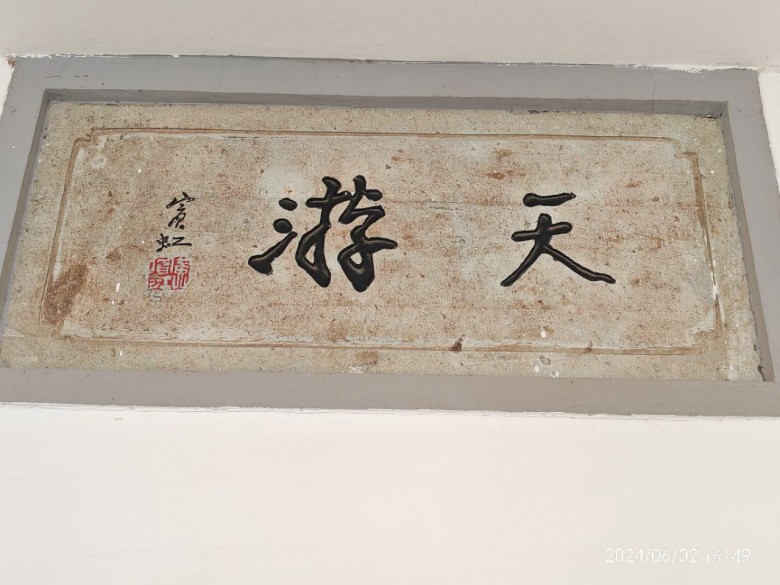 天游
賓虹
2024/06/02 14:49